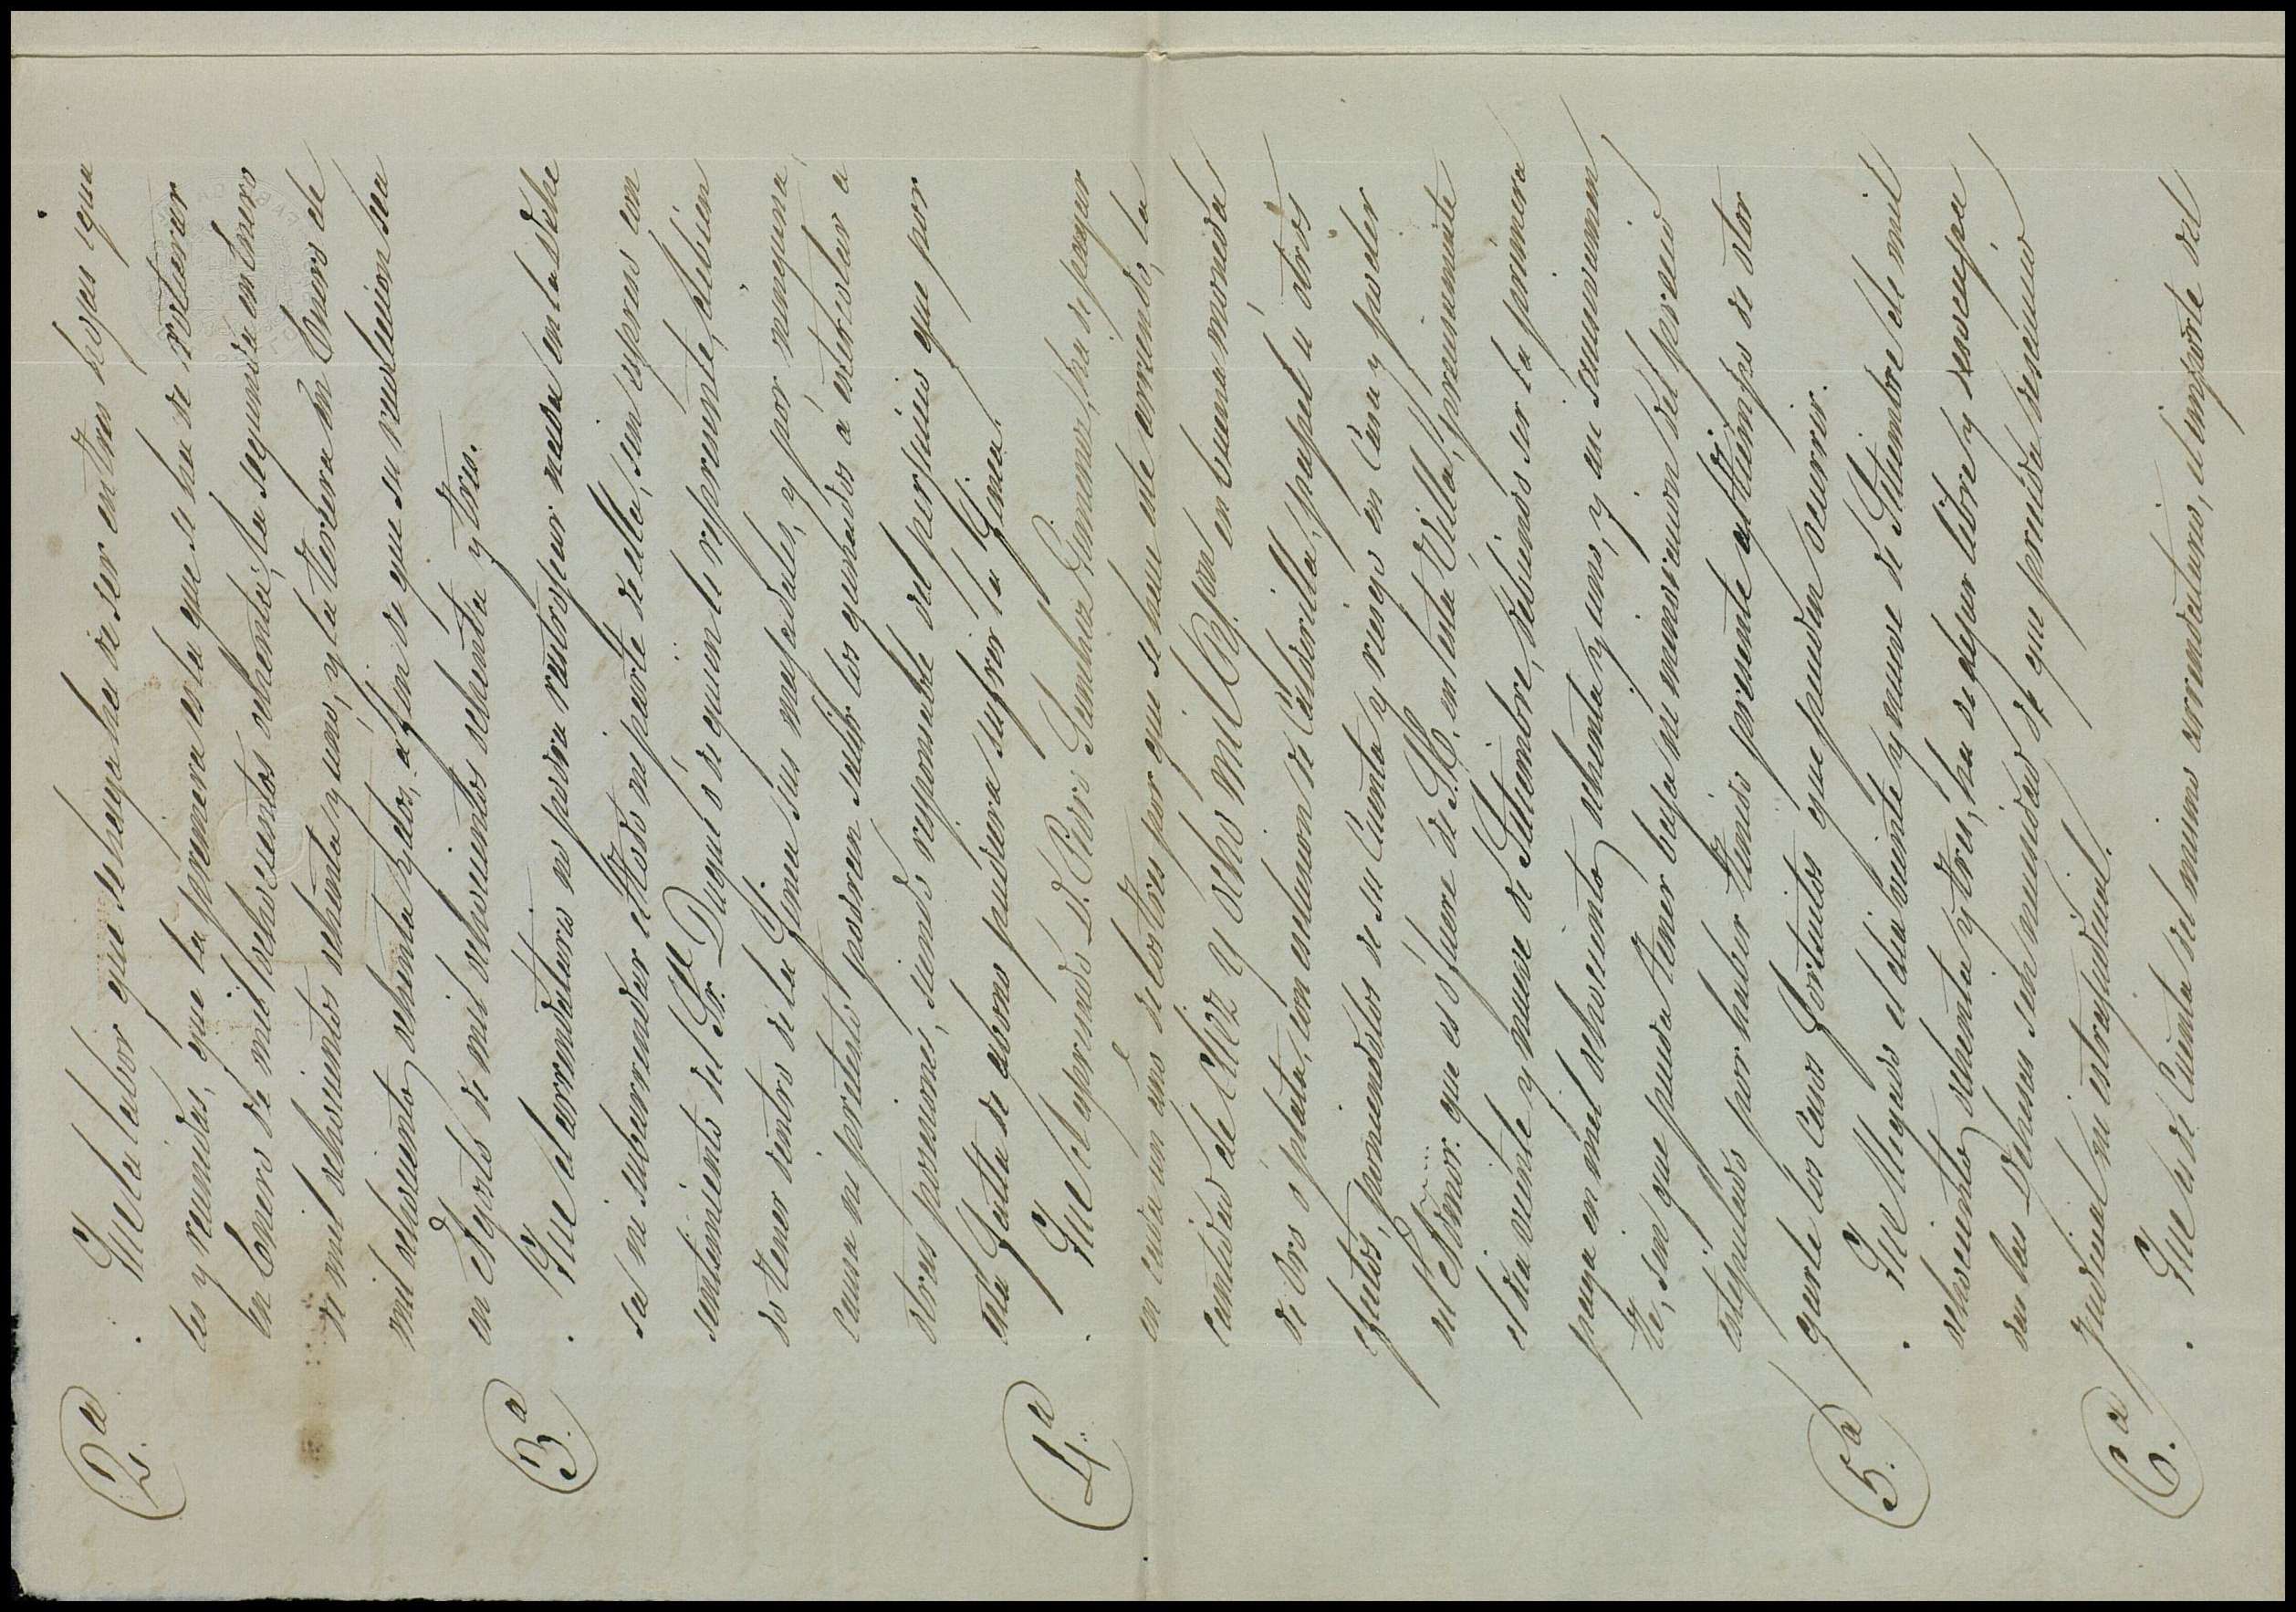 2.a
. Que la labor que se haga ha de ser en tres hojas igua
les y reunidas, que la primera es la que se ha de roturar
en Enero de mil ochocientos ochenta, la segunda en Enero
de mil ochocientos ochenta y uno, y la tercera en Enero de
mil ochocientos ochenta y dos, a fin de que su recoleccion sea
en Agosto de mil ochocientos ochenta y tres.
3.a
. Que el arrendatario no podra rastrojear nada en la dehe
sa ni subarrendar el todo ni parte de ella, sin espreso con
sentimiento del Sr. Duque ó de quien le represente, debien
do tener dentro de la Finca sus majadales, y por ninguna
causa ni pretesto podran salir los ganados a
otras posesiones, siendo responsable del perjuicio que por
esta falta de abono pudiera sufrir la Finca.
4.a
. Que el espresado D. Pedro Sanchez Gimenez, ha de pagar
en cada un año de los tres por que se hace este arriendo, la
cantidad de Diez y ocho mil Rs. von en buena moneda
de Oro o plata, con esclusion de Calderilla, papel u otros
efectos, poniendolos de su Cuenta y riesgo en Casa y poder
del Admor. que es ó fuere de S.E. en esta Villa, precisamente
el dia veinte y nueve de Setiembre, debiendo ser la primera
paga en mil ochocientos ochenta y uno, y asi sucesivamen
te, sin que pueda tener baja ni minoracion del precio
estipulado por haber tenido presente al tiempo de otor
garle los casos fortuitos que puedan ocurrir.
5.a
. Que llegado el dia veinte y nueve de Setiembre de mil
ochocientos ochenta y tres, ha de dejar libre y desocupa
das las Dehesas sin necesidad de que preceda desaucio
judicial ni estrajudicial.
6.a
. Que es de Cuenta del mismo arrendatario, el importe del